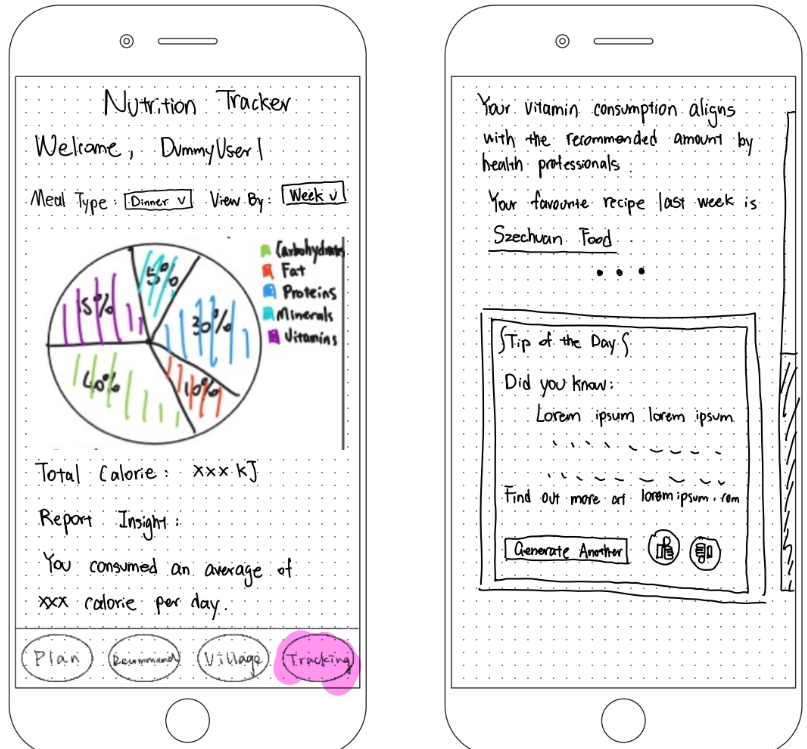 Nutrition Tracker
Welcome, DummyUser1
Meal Type: Dinner v View By: Week v
Carbohydrates
Fat
Proteins
Minerals
Vitamins
5%
15%
30%
40%
10%
Total Calorie: xxx kJ
Report Insight:
You consumed an average of
xxx calorie per day.
Plan Recommend Village Tracking
Your vitamin consumption aligns
with the recommended amount by
health professionals.
Your favourite recipe last week is
Szechuan Food
...
Tip of the Day
Did you know:
Lorem ipsum lorem ipsum
Find out more at loremipsum.com
Generate Another